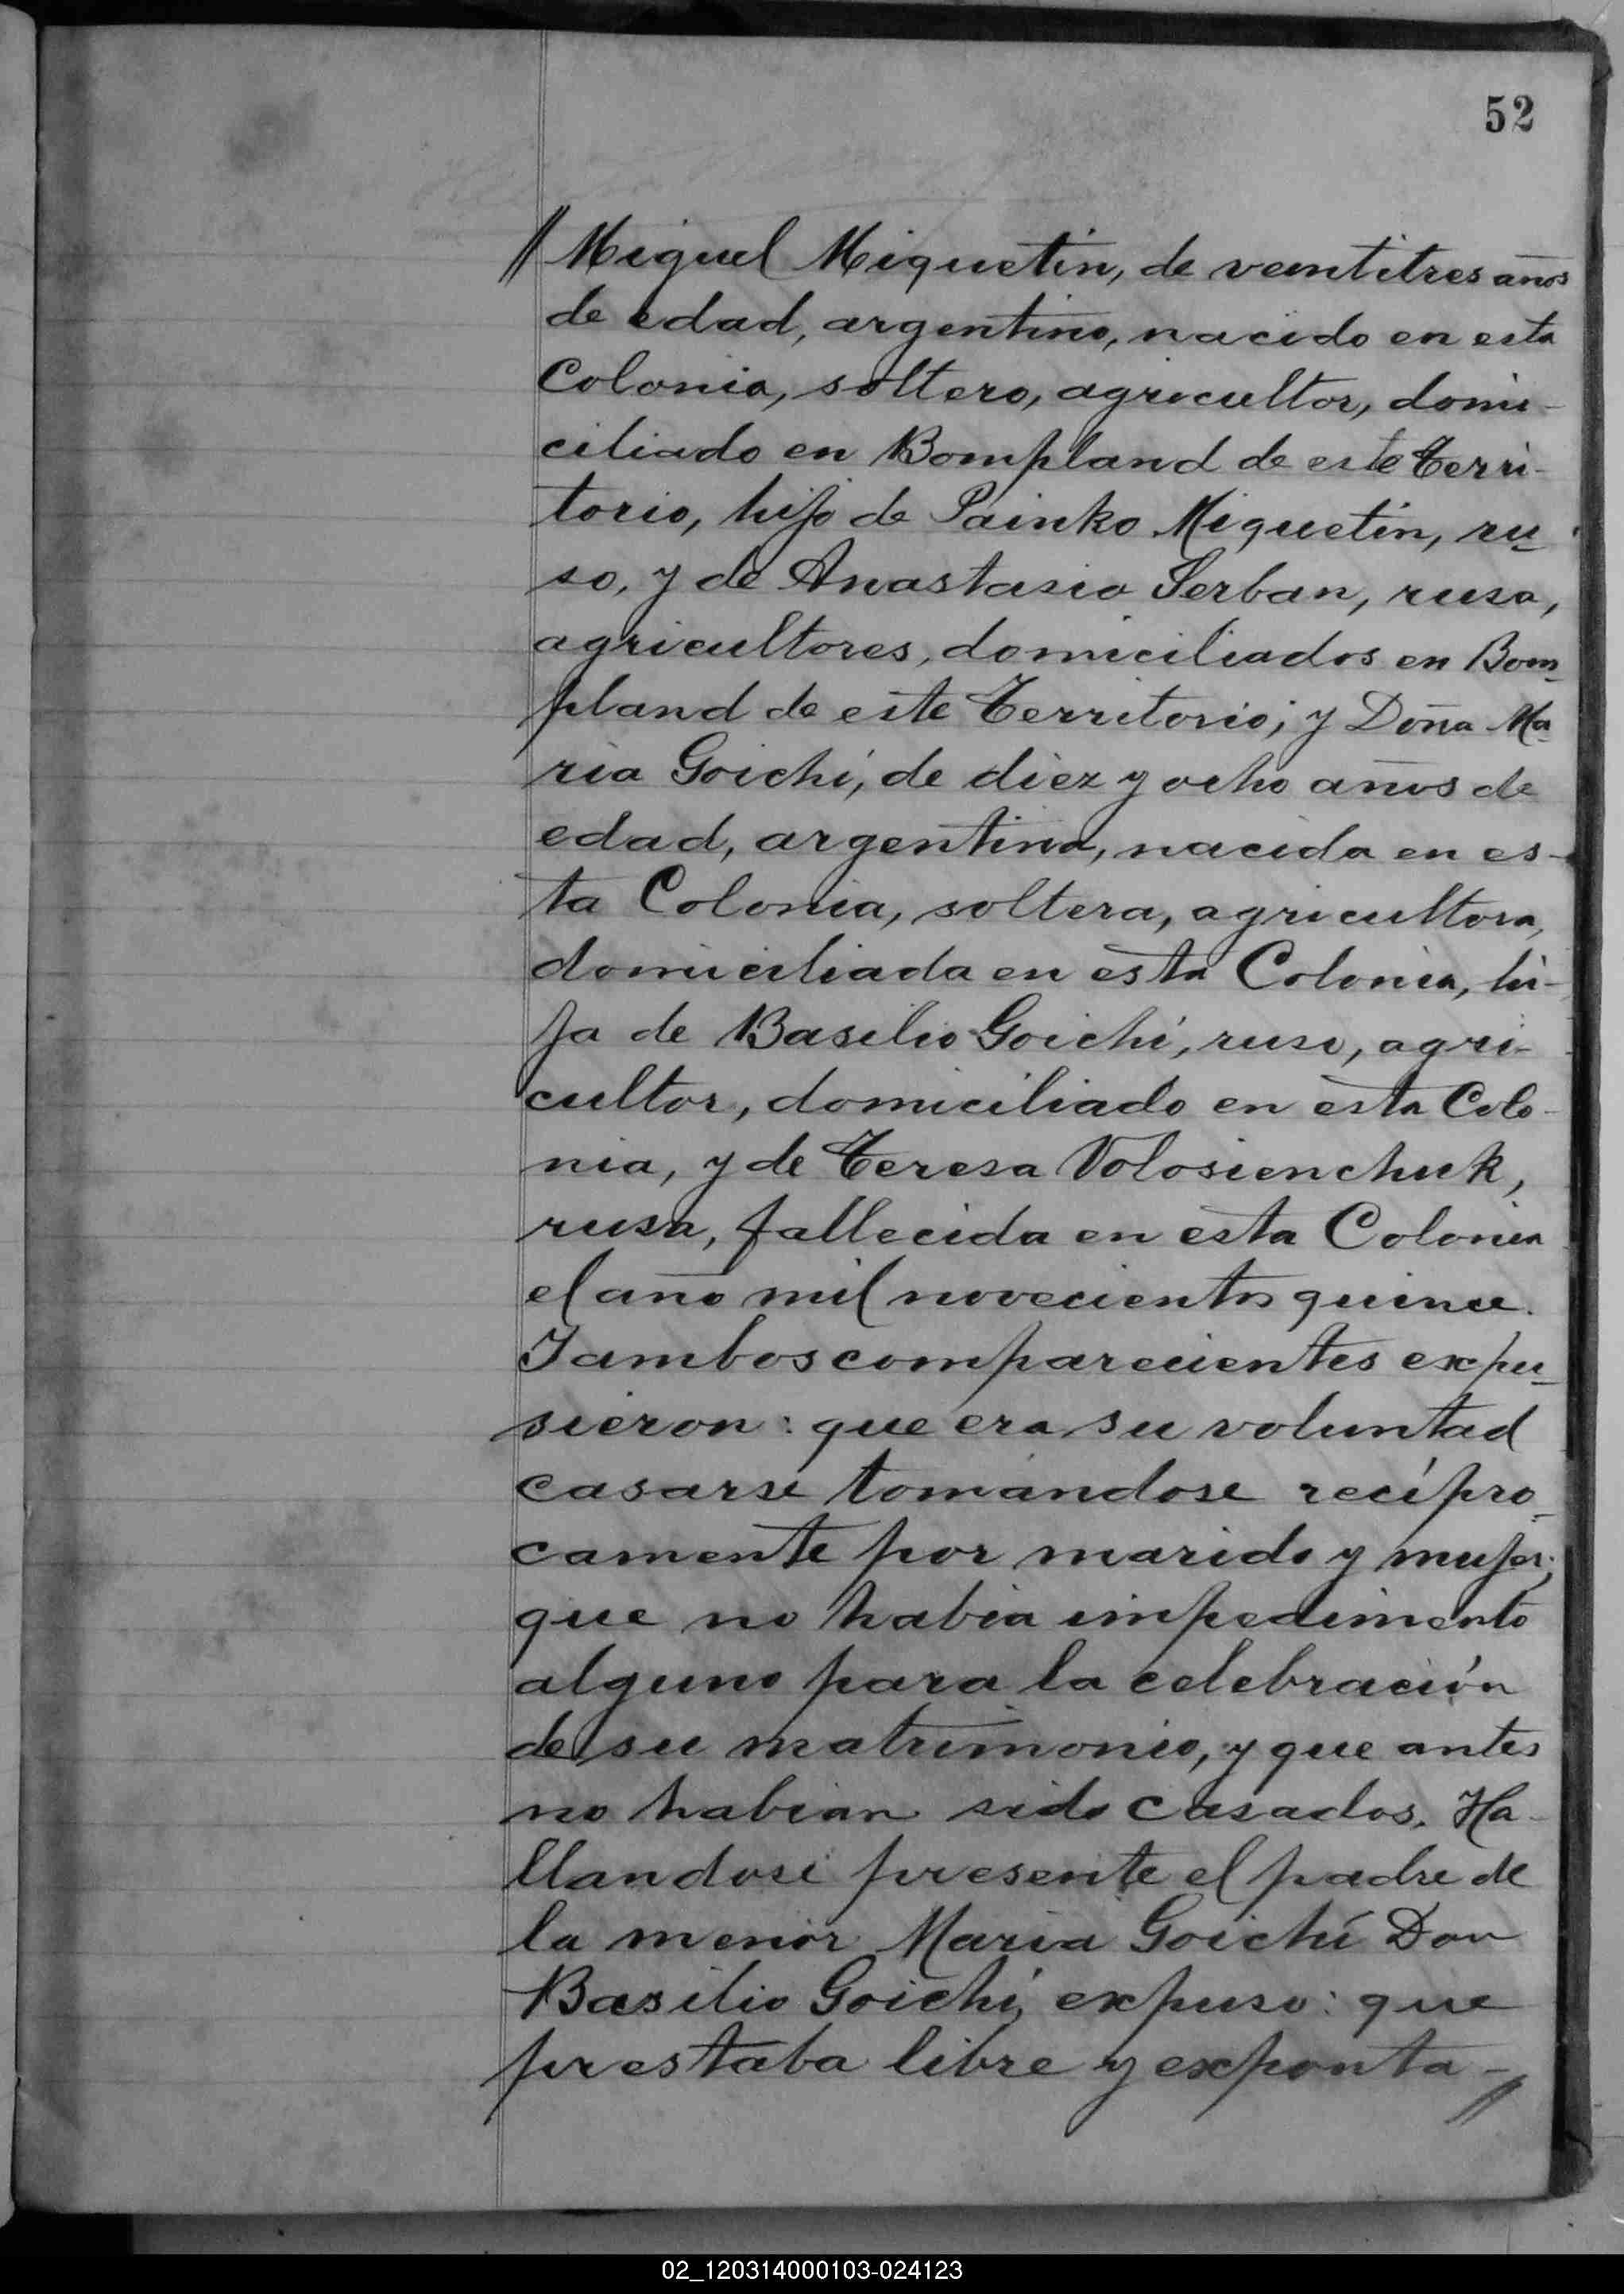 52
// Miguel Miquetin, de veintitres años
de edad, argentino, nacido en esta
Colonia, soltero, agricultor, domi-
ciliado en Bompland de este Terri-
torio, hijo de Painko Miquetin, ru-
so, y de Anastasia Serban, rusa,
agricultores, domiciliados en Bom-
pland de este Territorio; y Doña Ma-
ria Goichi, de diez y ocho años de
edad, argentina, nacida en es-
ta Colonia, soltera, agricultora,
domiciliada en esta Colonia, hi-
ja de Basilio Goichi, ruso, agri-
cultor, domiciliado en esta Colo-
nia, y de Teresa Volosienchuk,
rusa, fallecida en esta Colonia
el año mil novecientos quince.
I ambos comparecientes expu-
sieron: que era su voluntad
casarse tomandose recípro-
camente por marido y mujer;
que no habia impedimento
alguno para la celebración
de su matrimonio, y que antes
no habian sido casados. Ha-
llandose presente el padre de
la menor Maria Goichí Don
Basilio Goichi, expuso: que
prestaba libre y exponta- //
02_120314000103-024123